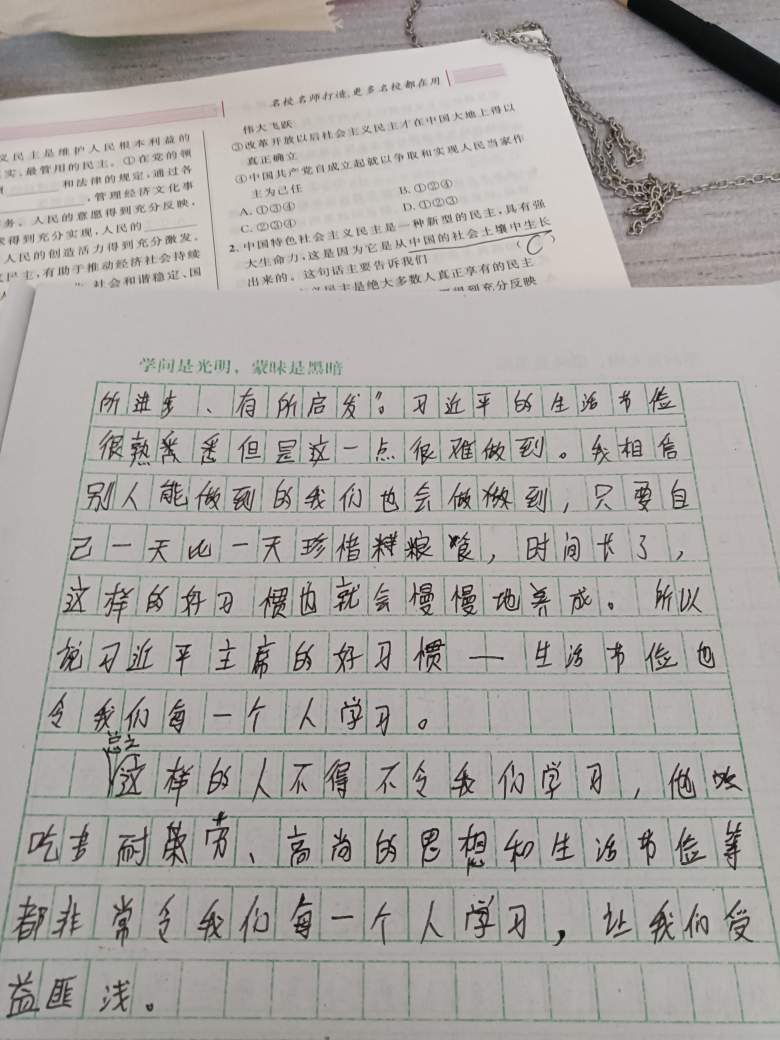 名校名师打造,更多名校都在用
义民主是维护人民根本利益的
实、最管用的民主。①在党的领
和法律的规定,通过各
,管理经济文化事
务。人民的意愿得到充分反映,
求得到充分实现,人民的
人民的创造活力得到充分激发。
民主,有助于推动经济社会持续
社会和谐稳定、国
伟大飞跃
③改革开放以后社会主义民主才在中国大地上得以
真正确立
④中国共产党自成立起就以争取和实现人民当家作
主为己任
A.①③④
B.①②④
C.②③④
D.①②③
2.中国特色社会主义民主是一种新型的民主,具有强
大生命力,这是因为它是从中国的社会土壤中生长
出来的。这句话主要告诉我们
(C)
民主是绝大多数人真正享有的民主
得到充分反映
学问是光明,蒙昧是黑暗
所进步、有所启发”。习近平的生活节俭
很熟悉悉但是这一点很难做到。我相信
别人能做到的我们也会做做到,只要自
己一天比一天珍惜粮食,时间长了,
这样的好习惯也就会慢慢地养成。所以
说习近平主席的好习惯——生活节俭也
令我们每一个人学习。
总之
这样的人不得不令我们学习,他
吃苦耐劳、高尚的思想和生活节俭等
都非常令我们每一个人学习,让我们受
益匪浅。